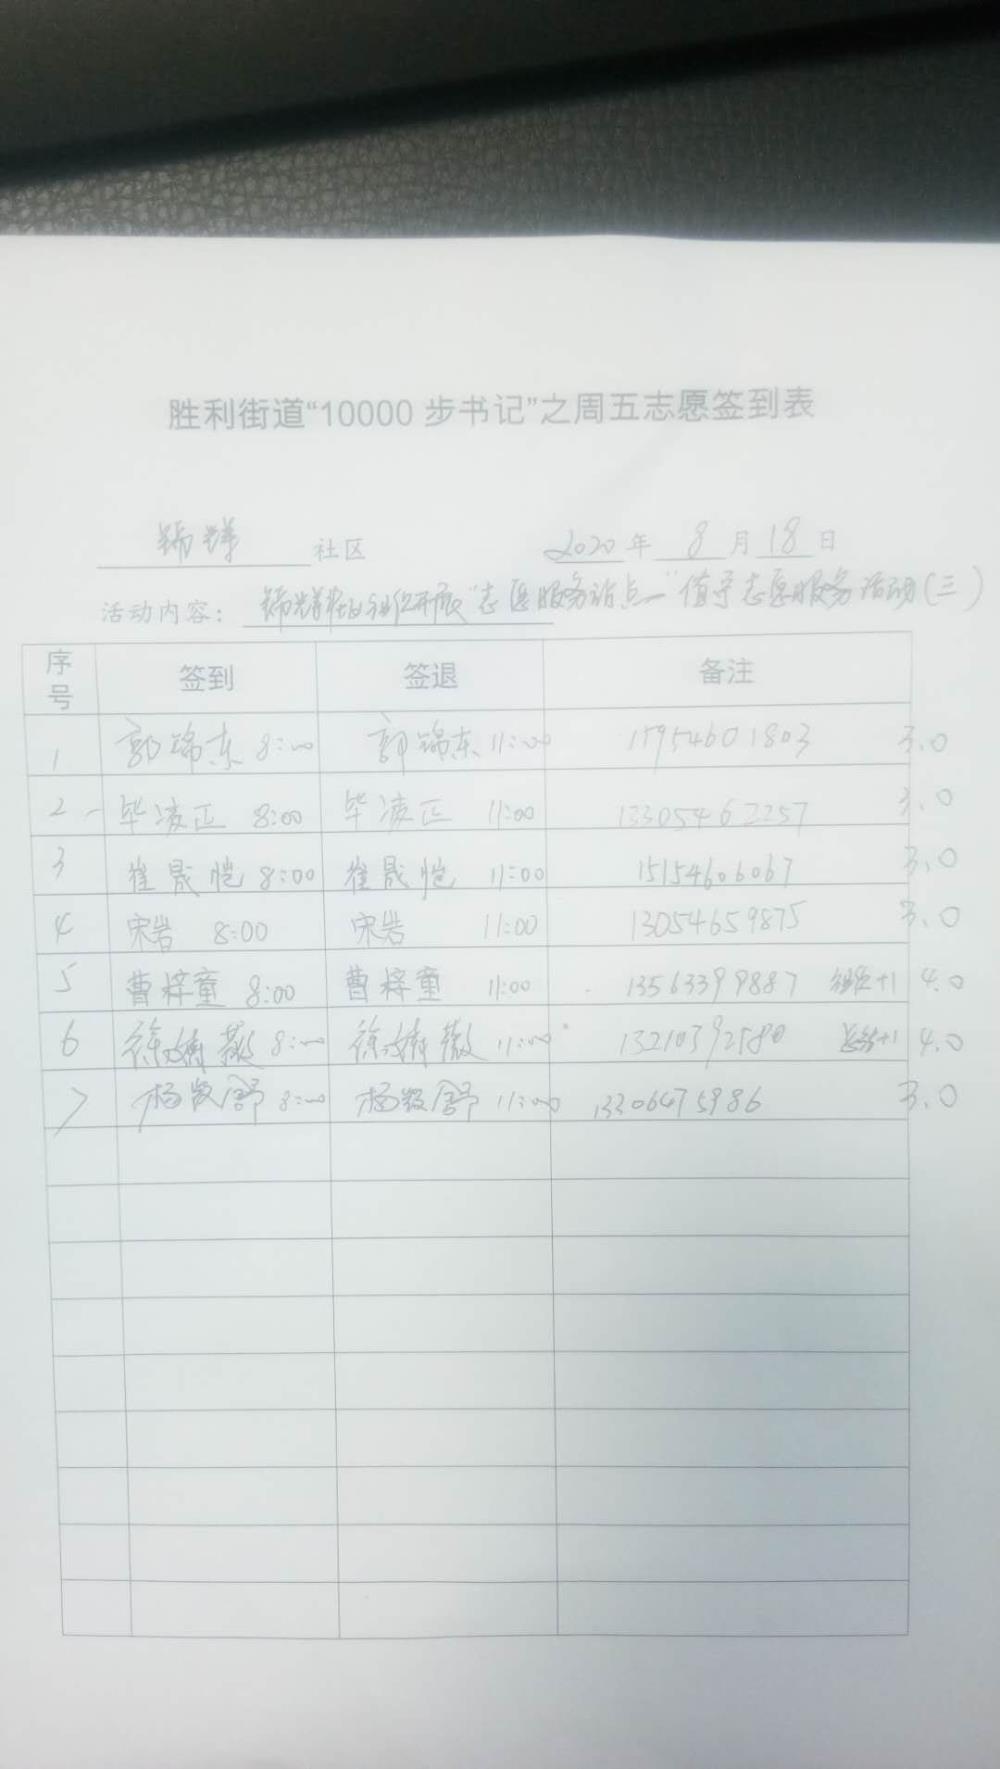 胜利街道“10000 步书记”之周五志愿签到表
锦辉 社区 2020 年 8 月 18 日
活动内容: 锦辉社区开展“志愿服务站点”值守志愿服务活动(三)
序号 签到 签退 备注
1 郭锦东 8:00 郭锦东 11:00 17954601803 3.0
2 毕凌正 8:00 毕凌正 11:00 13305462257 3.0
3 崔晟恺 8:00 崔晟恺 11:00 15154606067 3.0
4 宋岩 8:00 宋岩 11:00 13054659875 3.0
5 曹梓童 8:00 曹梓童 11:00 13563399887 +1 4.0
6 徐婧薇 8:00 徐婧薇 11:00 13210392580 总结+1 4.0
7 杨 舒 8:00 杨 舒 11:00 13306475986 3.0